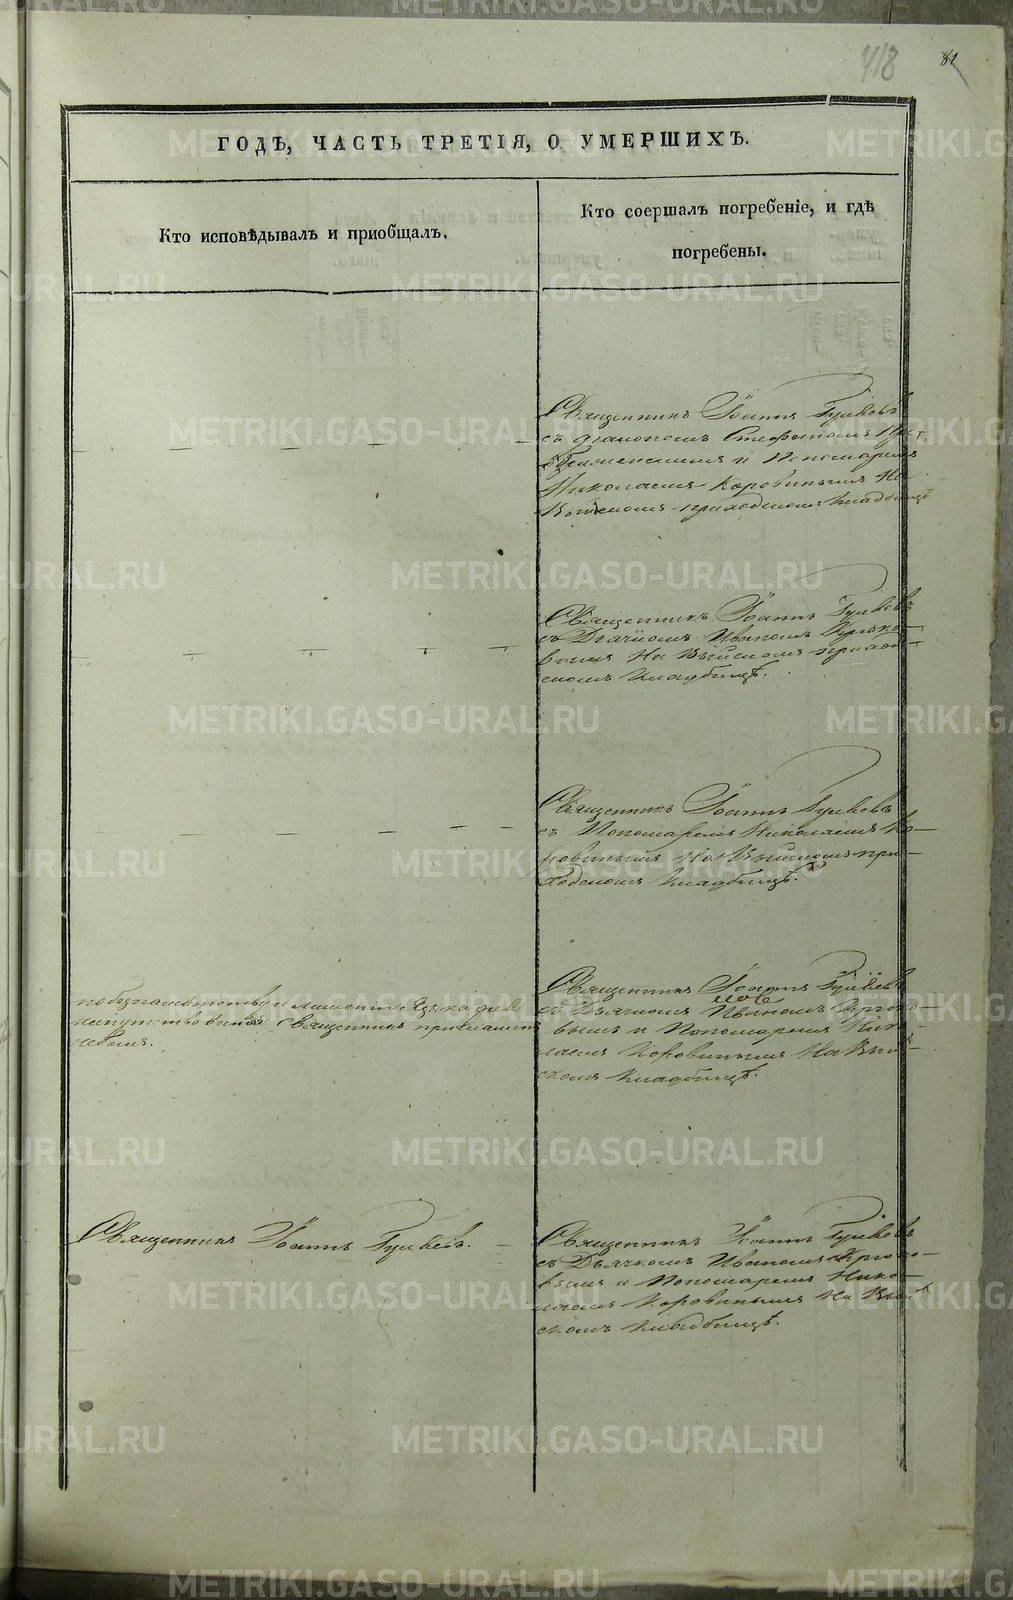 418
81
ГОДЪ, ЧАСТЬ ТРЕТІЯ, О УМЕРШИХЪ.
Кто исповѣдывалъ и приобщалъ.
Кто соершалъ погребеніе, и гдѣ
погребены.
Священникъ Іоаннъ
съ діакономъ Стефаномъ
и Пономаремъ
Николаемъ Коровинымъ На
приходскомъ кладбищѣ
Священникъ Іоаннъ
съ Дьячкомъ Иваномъ Крюко-
вымъ На Выйскомъ приход-
скомъ кладбищѣ.
Священникъ Іоаннъ
съ Пономаремъ Николаемъ Ко-
ровинымъ На Выйскомъ при-
ходскомъ кладбищѣ.
по безпамятству и лишенію языка
Священникъ
Священникъ Іоаннъ
съ Дьячкомъ Иваномъ Крюко
вымъ и Пономаремъ Нико-
лаемъ Коровинымъ На Вый-
скомъ кладбищѣ.
Священникъ Іоаннъ
Священникъ Іоаннъ
съ Дьячкомъ Иваномъ Крюко-
вымъ и Пономаремъ Нико-
лаемъ Коровинымъ На Вый
скомъ кладбищѣ.
METRIKI.GASO-URAL.RU